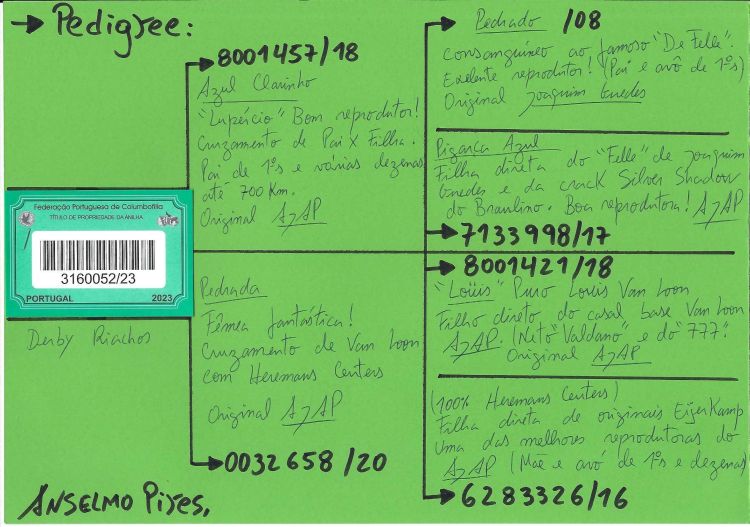 → Pedigree:
8001457/18
Azul Clarinho
"Lupércio" Bom reprodutor!
Cruzamento de Pai X Filha.
Pai de 1ºs e várias dezenas
até 700 Km.
Original AJAP
Federação Portuguesa de Columbofilia
TÍTULO DE PROPRIEDADE DA ANILHA
3160052/23
PORTUGAL 2023
Derby Riachos
Pedrada
Fêmea fantástica!
Cruzamento de Van Loon
com Heremans Ceusters
Original AJAP
0032658/20
Pedrado /08
Consanguíneo ao famoso "De Felle".
Exelente reprodutor! (Pai e avô de 1ºs)
Original Joaquim Guedes
Pigarça Azul
Filha direta do "Felle" de Joaquim
Guedes e da crack Silver Shadow
do Braulino. Boa reprodutora! AJAP
7133998/17
8001421/18
"Loüis" Puro Louis Van Loon
Filho direto do casal base Van Loon
AJAP. (Neto "Valdano" e do "777".
Original AJAP
(100% Heremans Ceusters)
Filha direta de originais EijerKamp
Uma das melhores reprodutoras do
AJAP (Mãe e avó de 1ºs e dezenas)
6283326/16
ANSELMO Pires,